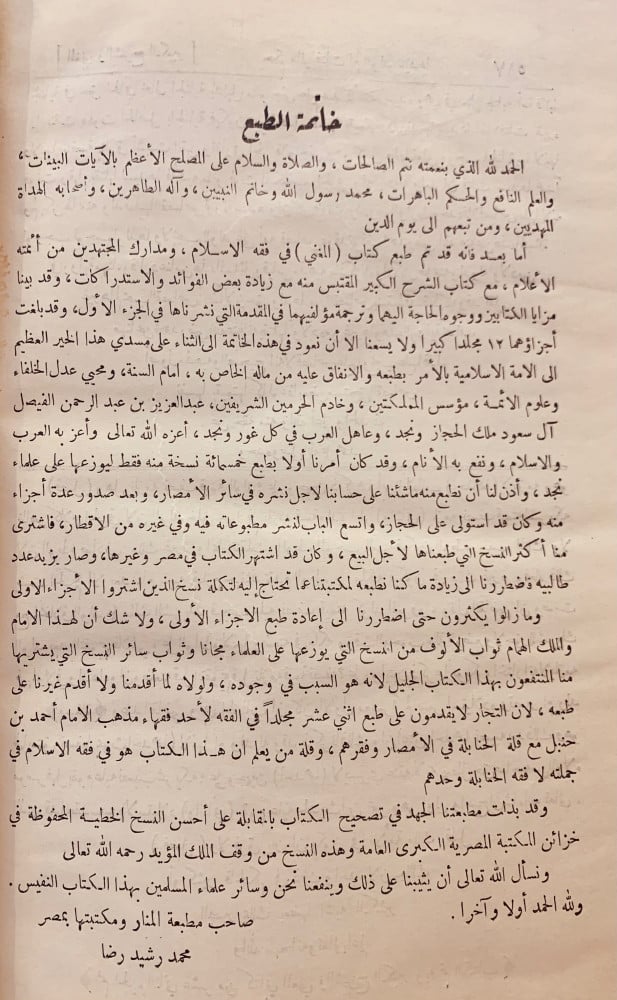 خاتمة الطبع
الحمد لله الذي بنعمته تتم الصالحات ، والصلاة والسلام على المصلح الأعظم بالآيات البينات ،
والعلم النافع والحكم الباهرات ، محمد رسول الله وخاتم النبيين ، وآله الطاهرين ، وأصحابه الهداة
المهديين ، ومن تبعهم الى يوم الدين
أما بعد فانه قد تم طبع كتاب ( المغني ) في فقه الاسلام ، ومدارك المجتهدين من أئمته
الأعلام ، مع كتاب الشرح الكبير المقتبس منه مع زيادة بعض الفوائد والاستدراكات ، وقد بينا
مزايا الكتابين ووجوه الحاجة اليهما وترجمة مؤلفيهما في المقدمة التي نشرناها في الجزء الأول ، وقد بلغت
أجزاؤهما ١٢ مجلدا كبيرا ولا يسعنا الا أن نعود في هذه الخاتمة الى الثناء على مسدي هذا الخير العظيم
الى الامة الاسلامية بالأمر بطبعه والانفاق عليه من ماله الخاص به ، امام السنة ، ومحيي عدل الخلفاء
وعلوم الائمة ، مؤسس المملكتين ، وخادم الحرمين الشريفين ، عبد العزيز بن عبد الرحمن الفيصل
آل سعود ملك الحجاز ونجد ، وعاهل العرب في كل غور ونجد ، أعزه الله تعالى وأعز به العرب
والاسلام ، ونفع به الأنام ، وقد كان أمرنا أولا بطبع خمسمائة نسخة منه فقط ليوزعها على علماء
نجد ، وأذن لنا أن نطبع منه ماشئنا على حسابنا لاجل نشره في سائر الأمصار ، وبعد صدور عدة أجزاء
منه وكان قد استولى على الحجاز ، واتسع الباب لنشر مطبوعاته فيه وفي غيره من الاقطار ، فاشترى
منا أكثر النسخ التي طبعناها لأجل البيع ، وكان قد اشتهر الكتاب في مصر وغيرها ، وصار يزيد عدد
طالبيه فاضطررنا الى زيادة ما كنا نطبعه لمكتبتنا عما نحتاج إليه لتكملة نسخ الذين اشتروا الأجزاء الاولى
وما زالوا يكثرون حتى اضطررنا الى إعادة طبع الاجزاء الأولى ، ولا شك أن لهذا الامام
والملك الهمام ثواب الألوف من النسخ التي يوزعها على العلماء مجانا وثواب سائر النسخ التي يشتريها
منا المنتفعون بهذا الكتاب الجليل لانه هو السبب في وجوده ، ولولاه لما أقدمنا ولا أقدم غيرنا على
طبعه ، لان التجار لا يقدمون على طبع اثني عشر مجلداً في الفقه لأحد فقهاء مذهب الامام أحمد بن
حنبل مع قلة الحنابلة في الأمصار وفقرهم ، وقلة من يعلم ان هذا الكتاب هو في فقه الاسلام في
جملته لا فقه الحنابلة وحدهم
وقد بذلت مطبعتنا الجهد في تصحيح الكتاب بالمقابلة على أحسن النسخ الخطية المحفوظة في
خزائن المكتبة المصرية الكبرى العامة وهذه النسخ من وقف الملك المؤيد رحمه الله تعالى
ونسأل الله تعالى أن يثيبنا على ذلك وينفعنا نحن وسائر علماء المسلمين بهذا الكتاب النفيس .
ولله الحمد أولا وآخرا .
صاحب مطبعة المنار ومكتبتها بمصر
محمد رشيد رضا